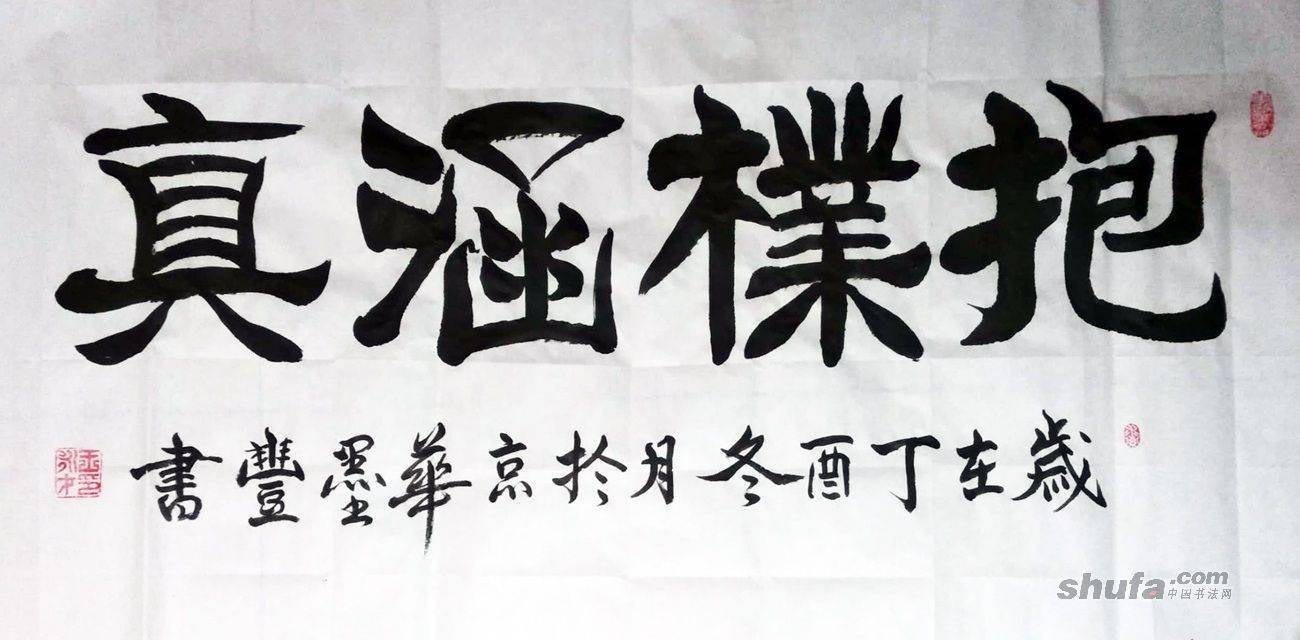 抱樸涵真
歲在丁酉冬月於京華墨豐書
shufa.com
中国书法网